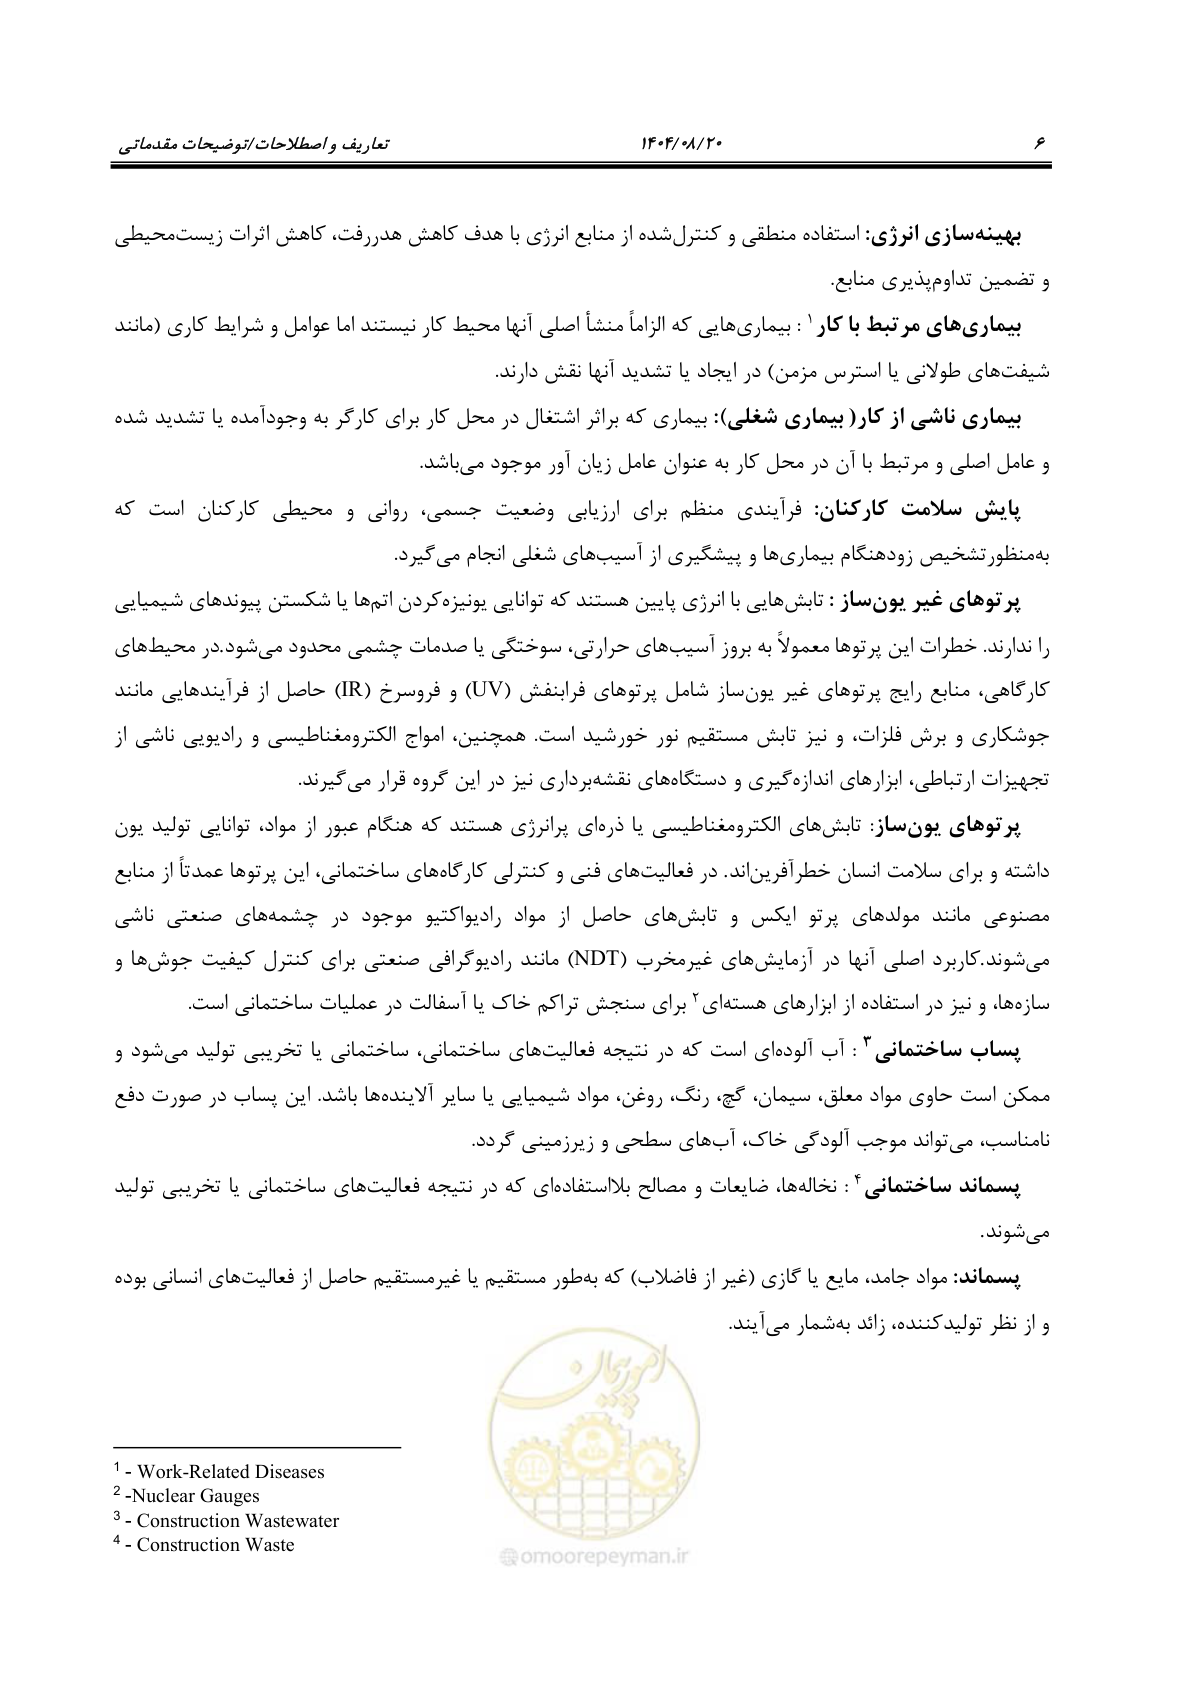 ۶ ۱۴۰۴/۰۸/۲۰ تعاریف و اصطلاحات/توضیحات مقدماتی
بهینه‌سازی انرژی: استفاده منطقی و کنترل‌شده از منابع انرژی با هدف کاهش هدررفت، کاهش اثرات زیست‌محیطی
و تضمین تداوم‌پذیری منابع.
بیماری‌های مرتبط با کار۱ : بیماری‌هایی که الزاماً منشأ اصلی آنها محیط کار نیستند اما عوامل و شرایط کاری (مانند
شیفت‌های طولانی یا استرس مزمن) در ایجاد یا تشدید آنها نقش دارند.
بیماری ناشی از کار( بیماری شغلی): بیماری که براثر اشتغال در محل کار برای کارگر به وجودآمده یا تشدید شده
و عامل اصلی و مرتبط با آن در محل کار به عنوان عامل زیان آور موجود می‌باشد.
پایش سلامت کارکنان: فرآیندی منظم برای ارزیابی وضعیت جسمی، روانی و محیطی کارکنان است که
به‌منظورتشخیص زودهنگام بیماری‌ها و پیشگیری از آسیب‌های شغلی انجام می‌گیرد.
پرتوهای غیر یون‌ساز : تابش‌هایی با انرژی پایین هستند که توانایی یونیزه‌کردن اتم‌ها یا شکستن پیوندهای شیمیایی
را ندارند. خطرات این پرتوها معمولاً به بروز آسیب‌های حرارتی، سوختگی یا صدمات چشمی محدود می‌شود.در محیط‌های
کارگاهی، منابع رایج پرتوهای غیر یون‌ساز شامل پرتوهای فرابنفش (UV) و فروسرخ (IR) حاصل از فرآیندهایی مانند
جوشکاری و برش فلزات، و نیز تابش مستقیم نور خورشید است. همچنین، امواج الکترومغناطیسی و رادیویی ناشی از
تجهیزات ارتباطی، ابزارهای اندازه‌گیری و دستگاه‌های نقشه‌برداری نیز در این گروه قرار می‌گیرند.
پرتوهای یون‌ساز: تابش‌های الکترومغناطیسی یا ذره‌ای پرانرژی هستند که هنگام عبور از مواد، توانایی تولید یون
داشته و برای سلامت انسان خطرآفرین‌اند. در فعالیت‌های فنی و کنترلی کارگاه‌های ساختمانی، این پرتوها عمدتاً از منابع
مصنوعی مانند مولدهای پرتو ایکس و تابش‌های حاصل از مواد رادیواکتیو موجود در چشمه‌های صنعتی ناشی
می‌شوند.کاربرد اصلی آنها در آزمایش‌های غیرمخرب (NDT) مانند رادیوگرافی صنعتی برای کنترل کیفیت جوش‌ها و
سازه‌ها، و نیز در استفاده از ابزارهای هسته‌ای۲ برای سنجش تراکم خاک یا آسفالت در عملیات ساختمانی است.
پساب ساختمانی۳ : آب آلوده‌ای است که در نتیجه فعالیت‌های ساختمانی، ساختمانی یا تخریبی تولید می‌شود و
ممکن است حاوی مواد معلق، سیمان، گچ، رنگ، روغن، مواد شیمیایی یا سایر آلاینده‌ها باشد. این پساب در صورت دفع
نامناسب، می‌تواند موجب آلودگی خاک، آب‌های سطحی و زیرزمینی گردد.
پسماند ساختمانی۴ : نخاله‌ها، ضایعات و مصالح بلااستفاده‌ای که در نتیجه فعالیت‌های ساختمانی یا تخریبی تولید
می‌شوند.
پسماند: مواد جامد، مایع یا گازی (غیر از فاضلاب) که به‌طور مستقیم یا غیرمستقیم حاصل از فعالیت‌های انسانی بوده
و از نظر تولیدکننده، زائد به‌شمار می‌آیند.
امور پیمان
1 - Work-Related Diseases
2 -Nuclear Gauges
3 - Construction Wastewater
4 - Construction Waste
@omoorepeyman.ir